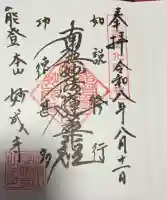 奉拝 令和八年八月十一日
如説修行
南無妙法蓮華経
功徳甚多
能登本山 妙成寺